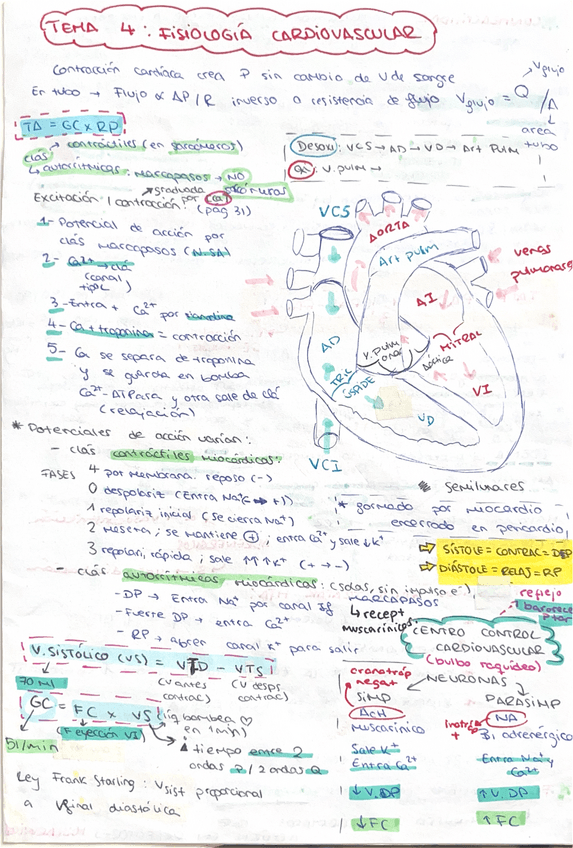 TEMA 4: FISIOLOGÍA CARDIOVASCULAR
Contracción cardíaca crea P sin cambio de V de sangre
En tubo → Flujo ∝ ΔP/R inverso a resistencia de flujo Vflujo = Q/A
Vflujo
área tubo
TA = GC x RP
clás
contráctiles (en sarcómeros)
autorrítmicas: marcapasos → NO sarcómeros
Desoxi: VCS → AD → VD → Art Pulm
Oxi: V. pulm →
Excitación / contracción: graduada por Ca
(pág 31)
1- Potencial de acción por
clás marcapasos (N.SA)
2- Ca2+ → clá
(canal
tipo L)
3- Entra + Ca2+ por
4- Ca + troponina = contracción
5- Ca se separa de troponina
y se guarda en bomba
Ca2+-ATPasa y otra sale de clá
(relajación)
VCS
AORTA
Art pulm
venas
pulmonares
AI
AD
V. pulmonar
Aórtica
MITRAL
TRICÚSPIDE
VI
VD
VCI
* Potenciales de acción varían:
- clás contráctiles miocárdicas:
FASES 4 por membrana reposo (-)
0 despolariz (Entra Na+ (- → +))
1 repolariz inicial (se cierra Na+)
2 Meseta; se mantiene +; entra Ca2+ y sale ↓K+
3 repolari, rápida; sale ↑↑↑K+ (+ → -)
- clás autorrítmicas miocárdicas: (solas, sin impulso e-)
MARCAPASOS
- DP → Entra Na+ por canal If
- Fuerte DP → entra Ca2+
- RP → abren canal K+ para salir
↳ recept
muscarínicos
semilunares
* formado por miocardio
encerrado en pericardio
⇒ SÍSTOLE = CONTRAC = DEP
⇒ DIÁSTOLE = RELAJ = RP
reflejo
baroreceptor
CENTRO CONTROL
CARDIOVASCULAR
(bulbo raquídeo)
V. SISTÓLICO (VS) = VTD - VTS
70 ml
(V antes contrac)
(V desps. contrac)
GC = FC x VS
(lq bombea ♡ en 1 min)
(F eyección VI)
5 l/min
tiempo entre 2
ondas P / 2 ondas Q
Ley Frank Starling: Vsist proporcional
a Vfinal diastólica
NEURONAS
cronotróp
negat
SIMP
ACH
Muscarínico
Sale K+
Entra Ca2+
↓V. DP
↓FC
PARASIMP
inotróp
+
NA
B1 adrenérgico
Entra Na+ y
Ca2+
↑V. DP
↑FC